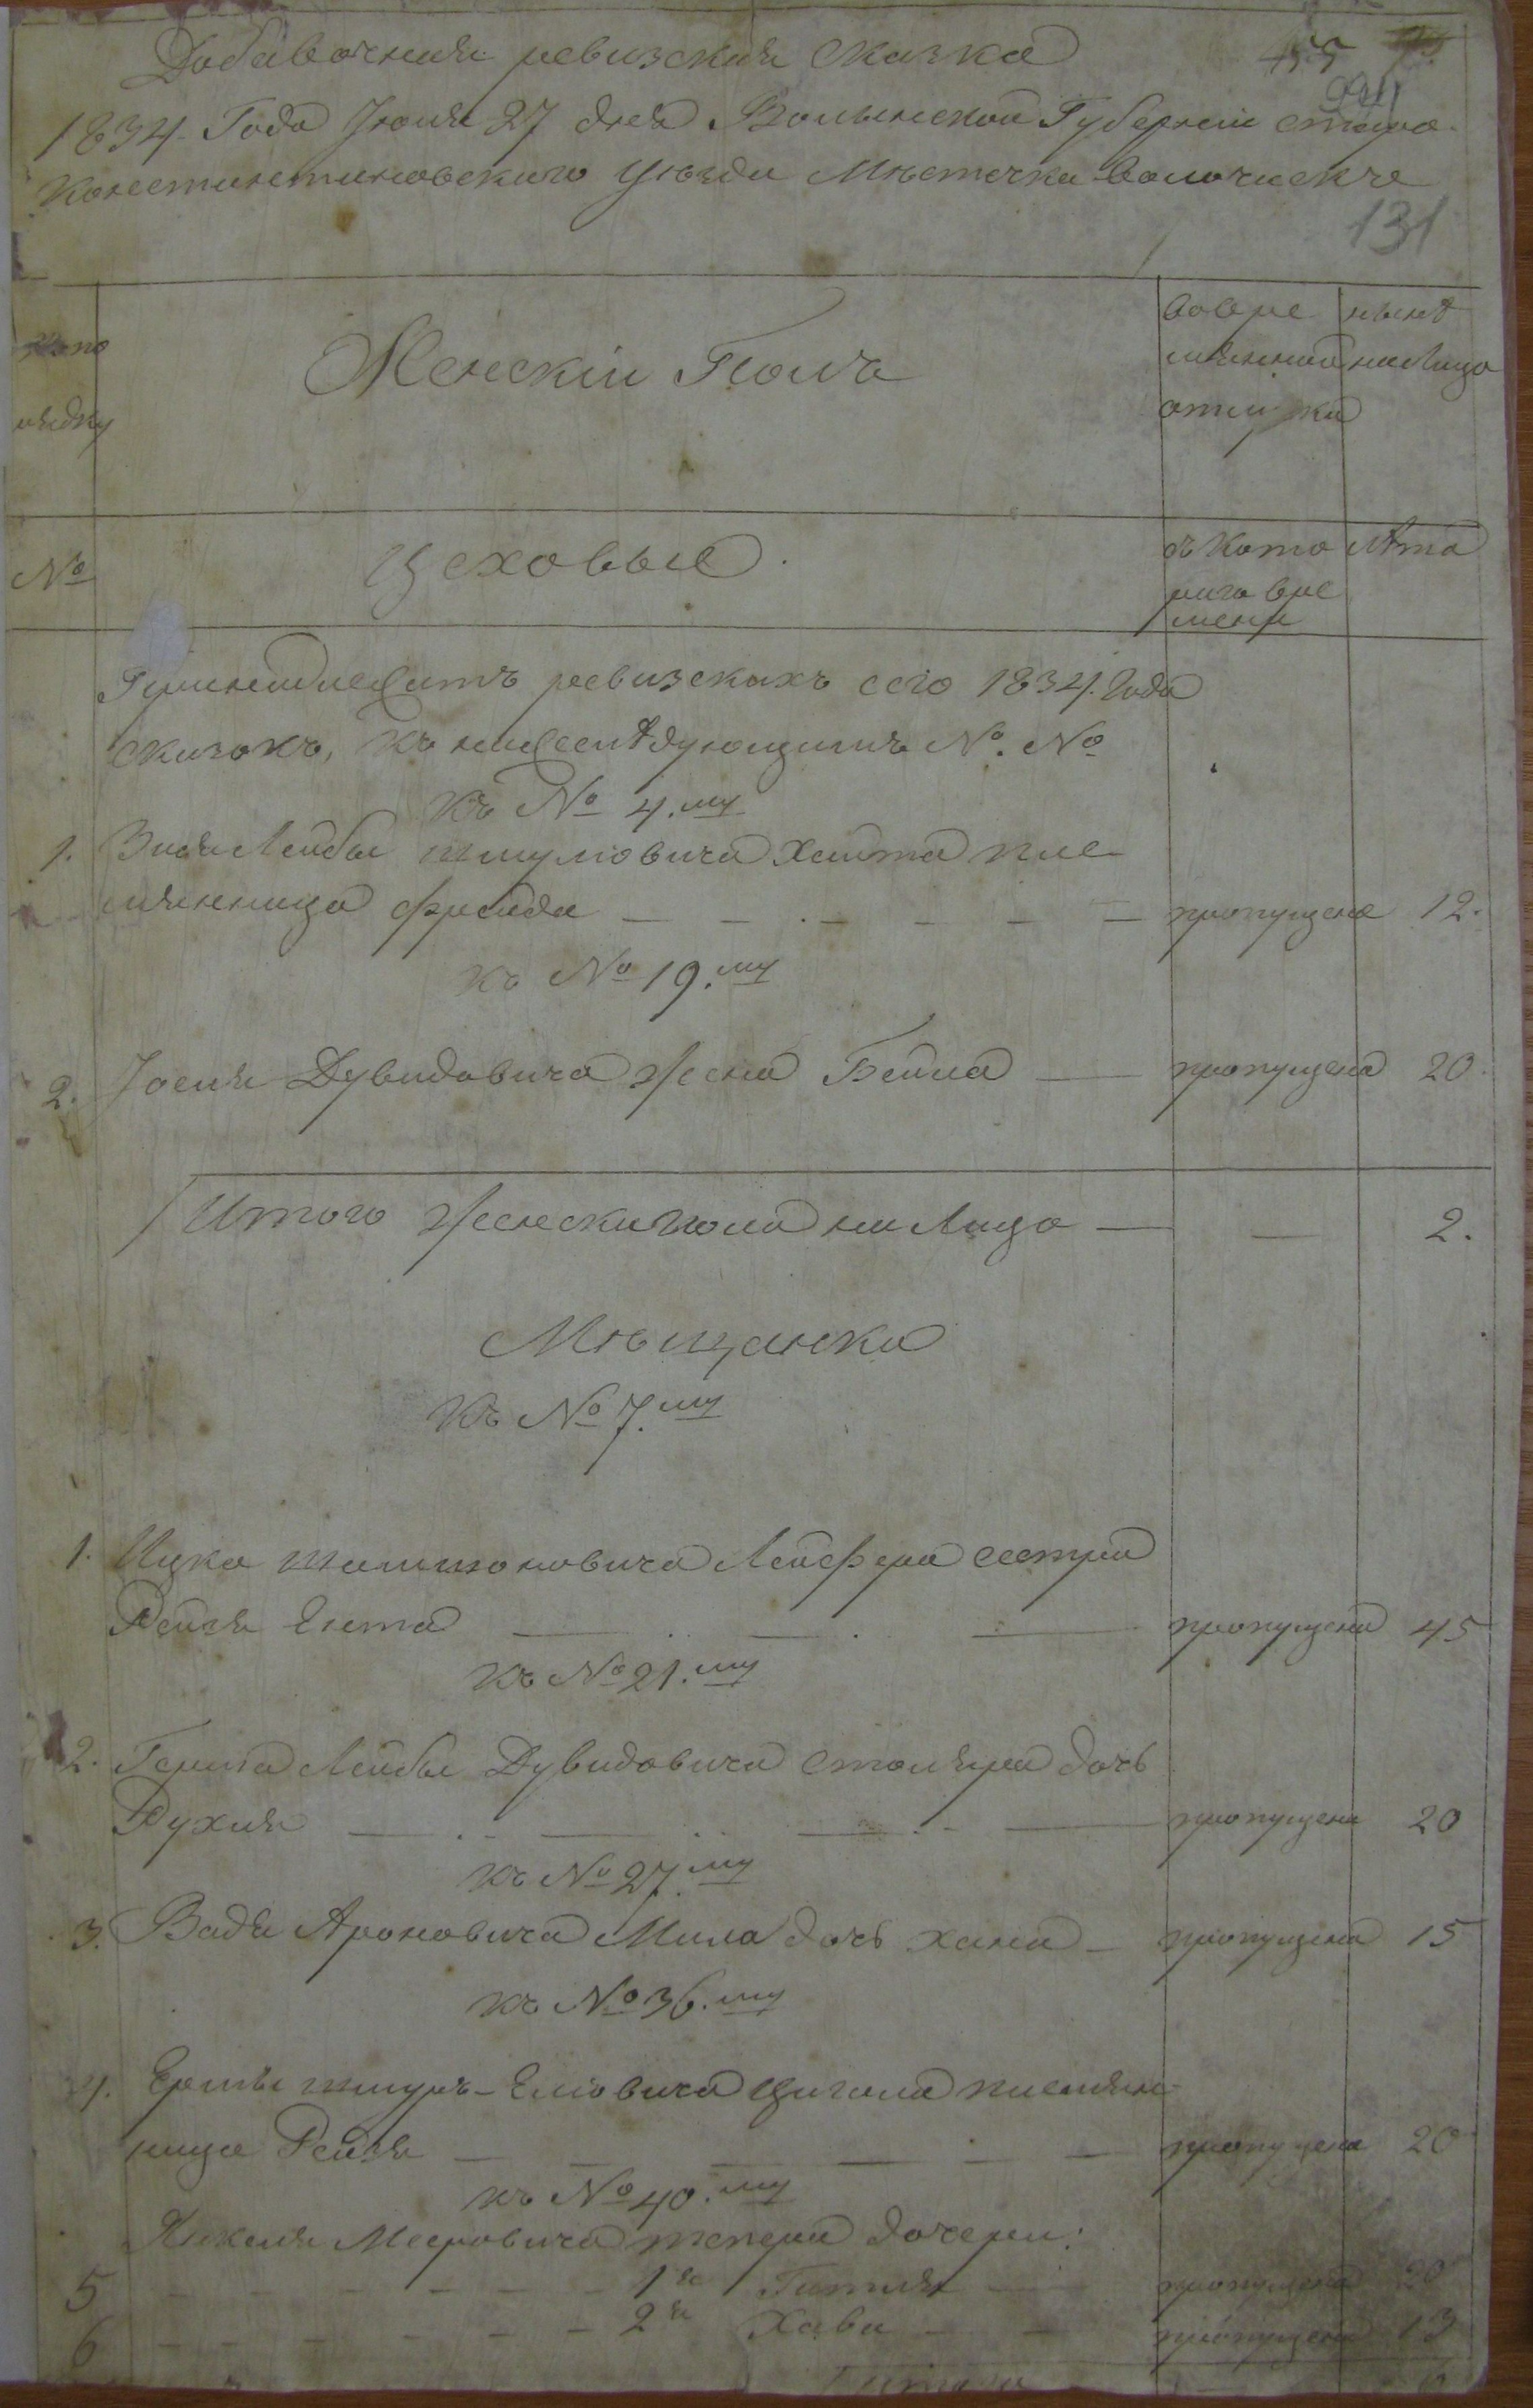 Добавочная ревизская сказка
1834. Года Июня 27 дня Волынской Губерніи старо-
константиновского уѣзда Мѣстечка Волочиска
131
Женскій Полъ
вовре нынѣ
мянной налицо
отлучкѣ
№ Цеховые. съ кото лѣта
раго вре
мени
Принадлежатъ ревизскихъ сего 1834. Года
сказокъ, къ нижеслѣдующимъ №. №
къ № 4.му
1. Зися Лейбы шмулiовича Хаита пле-
мянница фрейда — пропущена 12.
къ № 19.му
2. Iосия Дувидовича жена Бейла — пропущена 20.
Итого женска пола на лицо — — 2.
Мѣщанки
къ № 7.му
1. Ицка шлiомовича Лейфера сестра
Рейзя Ента — пропущена 45
къ № 21.му
2. Герша Лейбы Дувидовича столяра дочь
Рухля — пропущена 20
къ № 27.му
3. Вадя Ароновича Мила дочь хана — пропущена 15
къ № 36.му
4. шмуль-Елiовича Цигала племян-
ница Рейзя — пропущена 20
къ № 40.му
Янкеля Мееровича тепера дочери:
5 — 1я Гитля — пропущена 20
6 — 2я Хава — пропущена 13